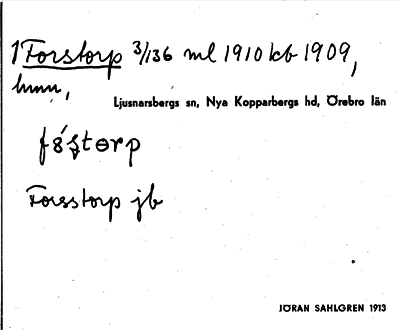 1 Forstorp 3/136 ml 1910 kb 1909,
Ljusnarsbergs sn, Nya Kopparbergs hd, Örebro län
Forsstorp jb
JÖRAN SAHLGREN 1913